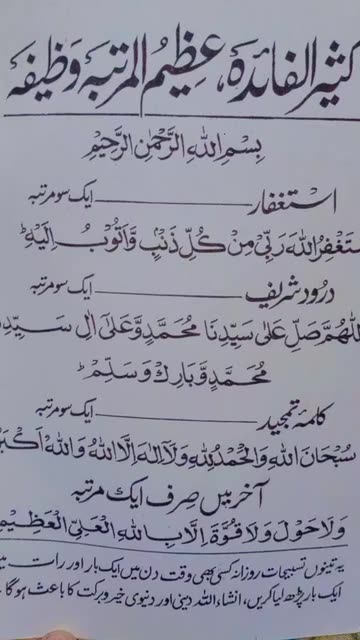 کثیر الفائدہ، عظیم المرتبہ وظیفہ
بِسْمِ اللهِ الرَّحْمٰنِ الرَّحِيْمِ
استغفار ــــــ ایک سو مرتبہ
سْتَغْفِرُ اللهَ رَبِّيْ مِنْ كُلِّ ذَنْبٍ وَّاَتُوْبُ اِلَيْهِ ط
درود شریف ــــــ ایک سو مرتبہ
للّٰهُمَّ صَلِّ عَلٰى سَيِّدِنَا مُحَمَّدٍ وَّعَلٰى اٰلِ سَيِّدِنَ
مُحَمَّدٍ وَّبَارِكْ وَسَلِّمْ ط
کلمہ تمجید ــــــ ایک سو مرتبہ
سُبْحَانَ اللهِ وَالْحَمْدُ لِلّٰهِ وَلَآ اِلٰهَ اِلَّا اللهُ وَاللهُ اَكْبَرُ
آخر میں صرف ایک مرتبہ
وَلَا حَوْلَ وَلَا قُوَّةَ اِلَّا بِاللهِ الْعَلِيِّ الْعَظِيْمِ
یہ تینوں تسبیحات روزانہ کسی بھی وقت دن میں ایک بار اور رات میں
ایک بار پڑھ لیا کریں، انشاء اللہ دینی اور دنیوی خیر و برکت کا باعث ہوگا۔